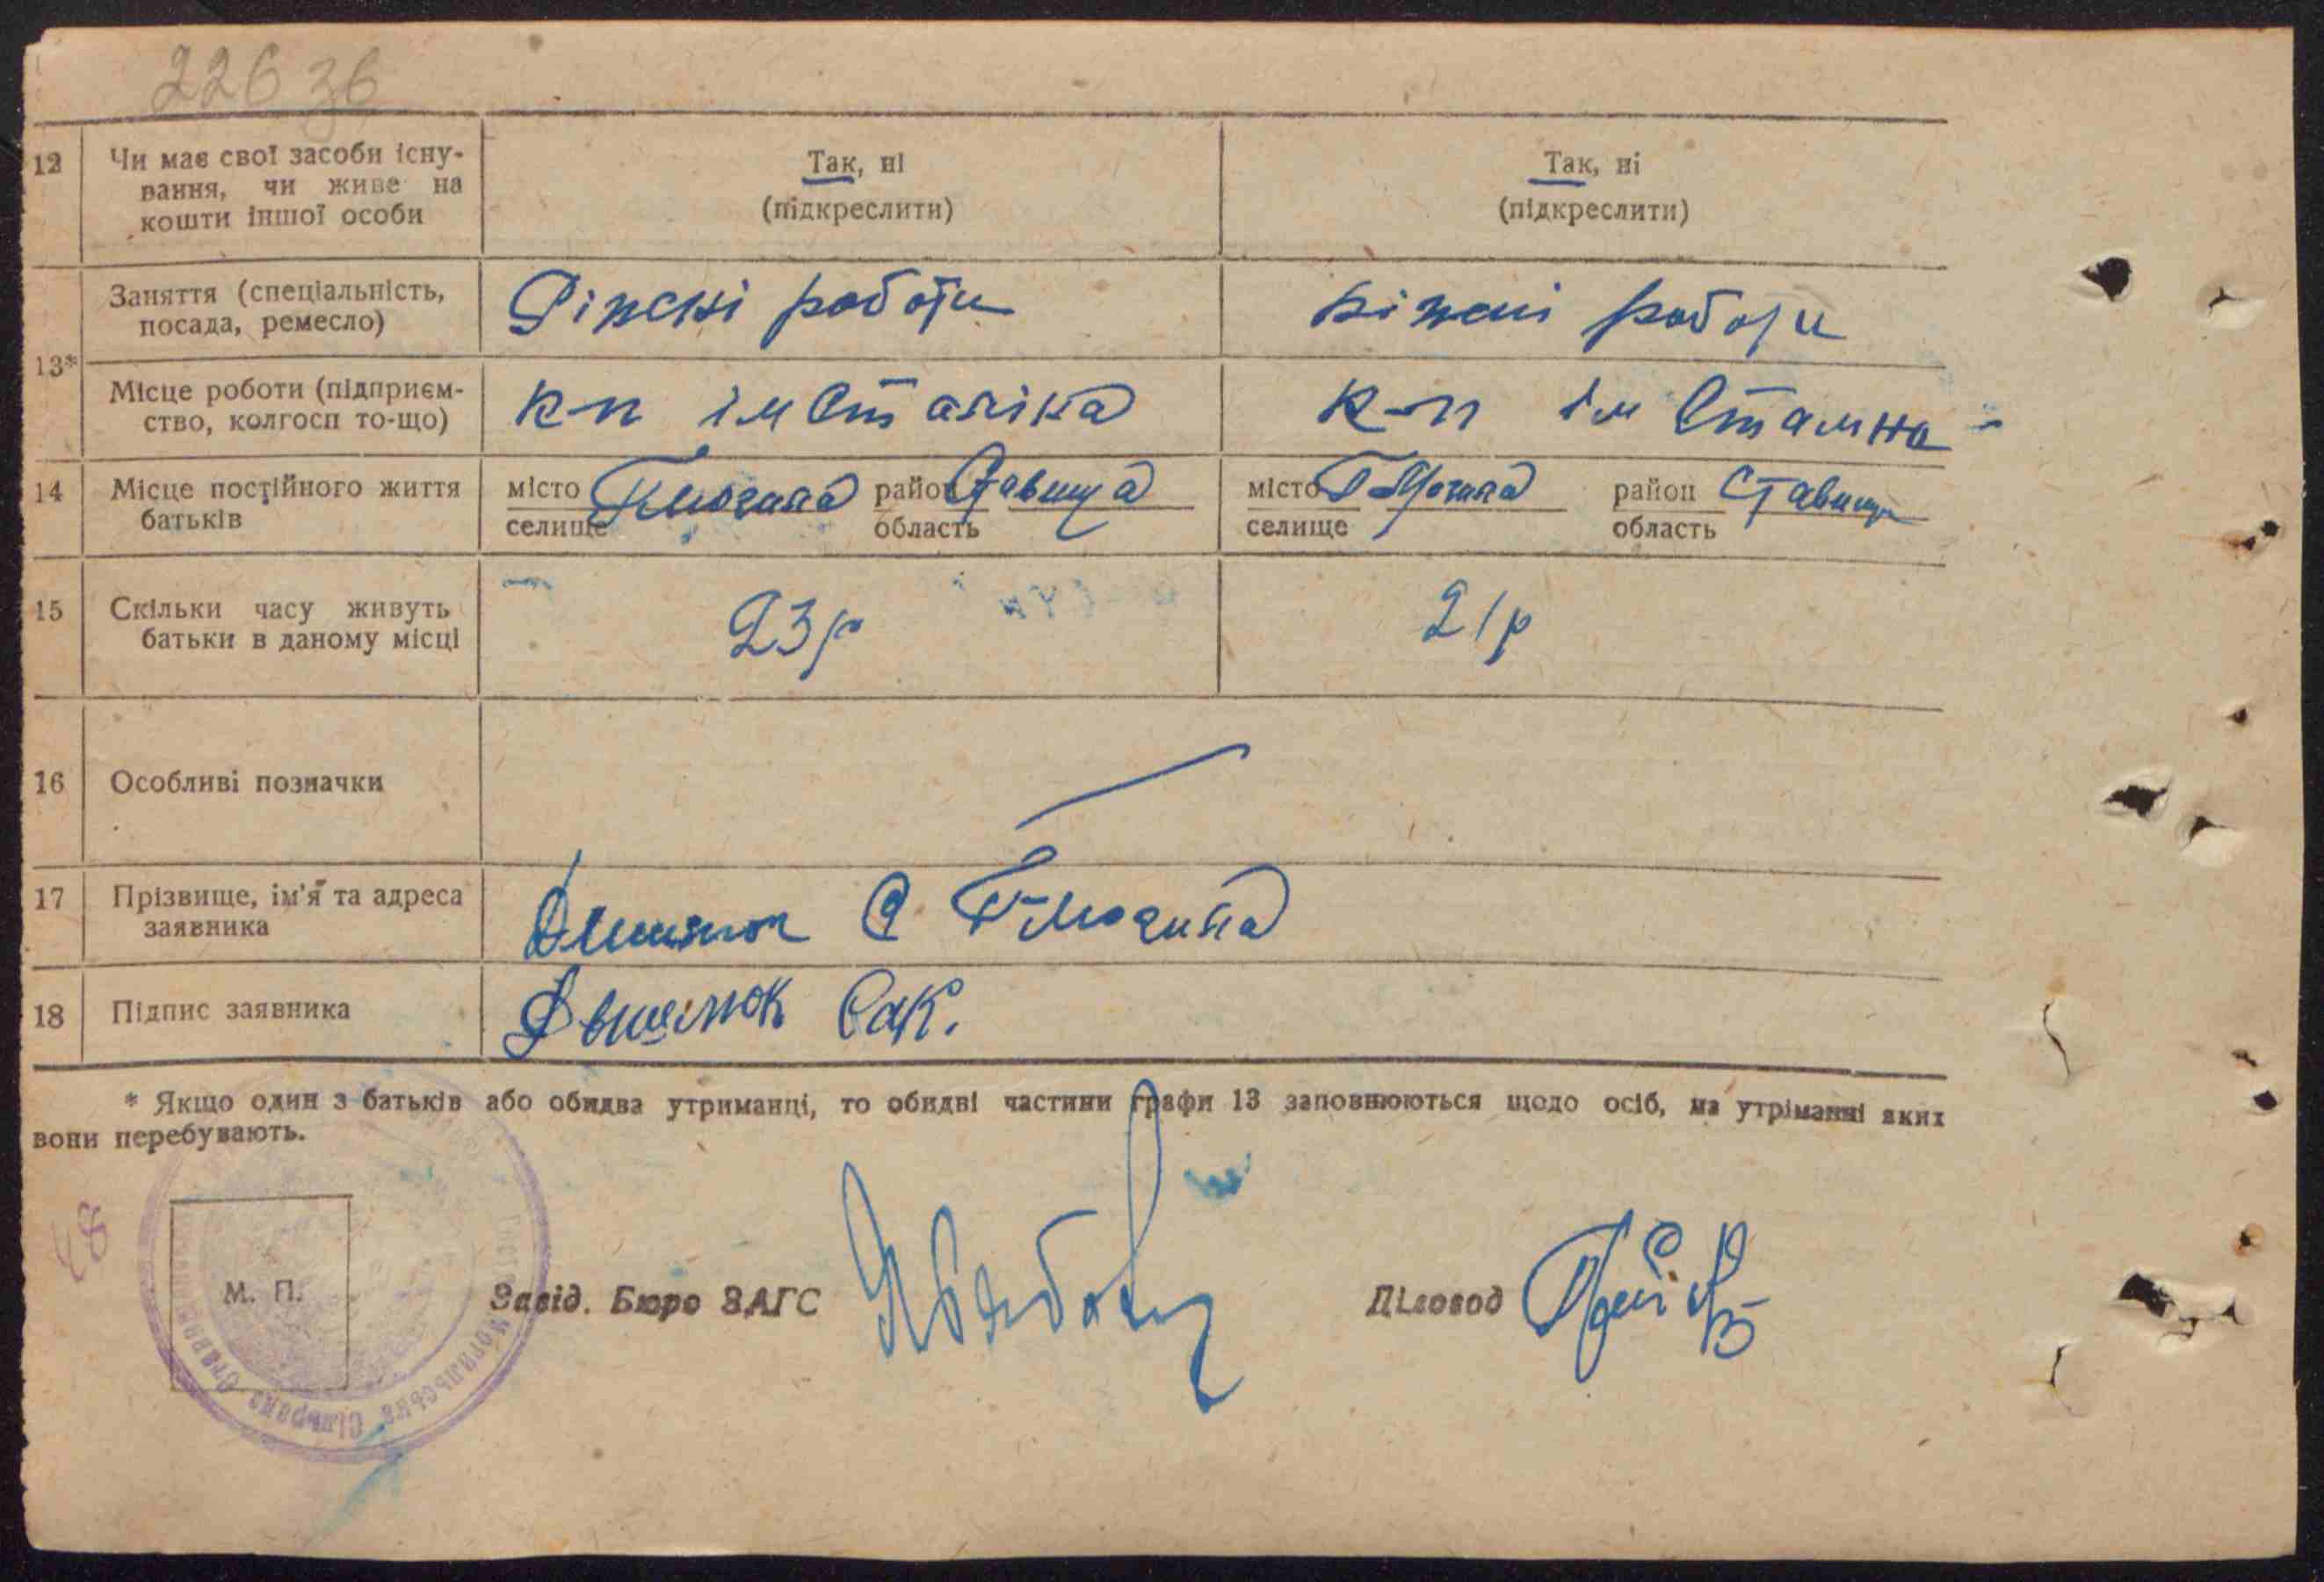 22636
12 Чи має свої засоби існу- Так, ні Так, ні
вання, чи живе на (підкреслити) (підкреслити)
кошти іншої особи
13* Заняття (спеціальність, Ріжскі роботи ріжні роботи
посада, ремесло)
Місце роботи (підприєм- к-п ім Сталіна к-п ім Сталіна
ство, колгосп то-що)
14 Місце постійного життя місто Г-Могила район Ставища місто Г-Могила район Ставищ
батьків селище область селище область
15 Скільки часу живуть 23р 21р
батьки в даному місці
16 Особливі позначки
17 Прізвище, ім'я та адреса С Г-Могила
заявника
18 Підпис заявника Сак.
* Якщо один з батьків або обидва утриманці, то обидві частини графи 13 заповнюються щодо осіб, на утріманні яких
вони перебувають.
48
М. П.
Завід. Бюро ЗАГС Діловод
Могильська Сільрада